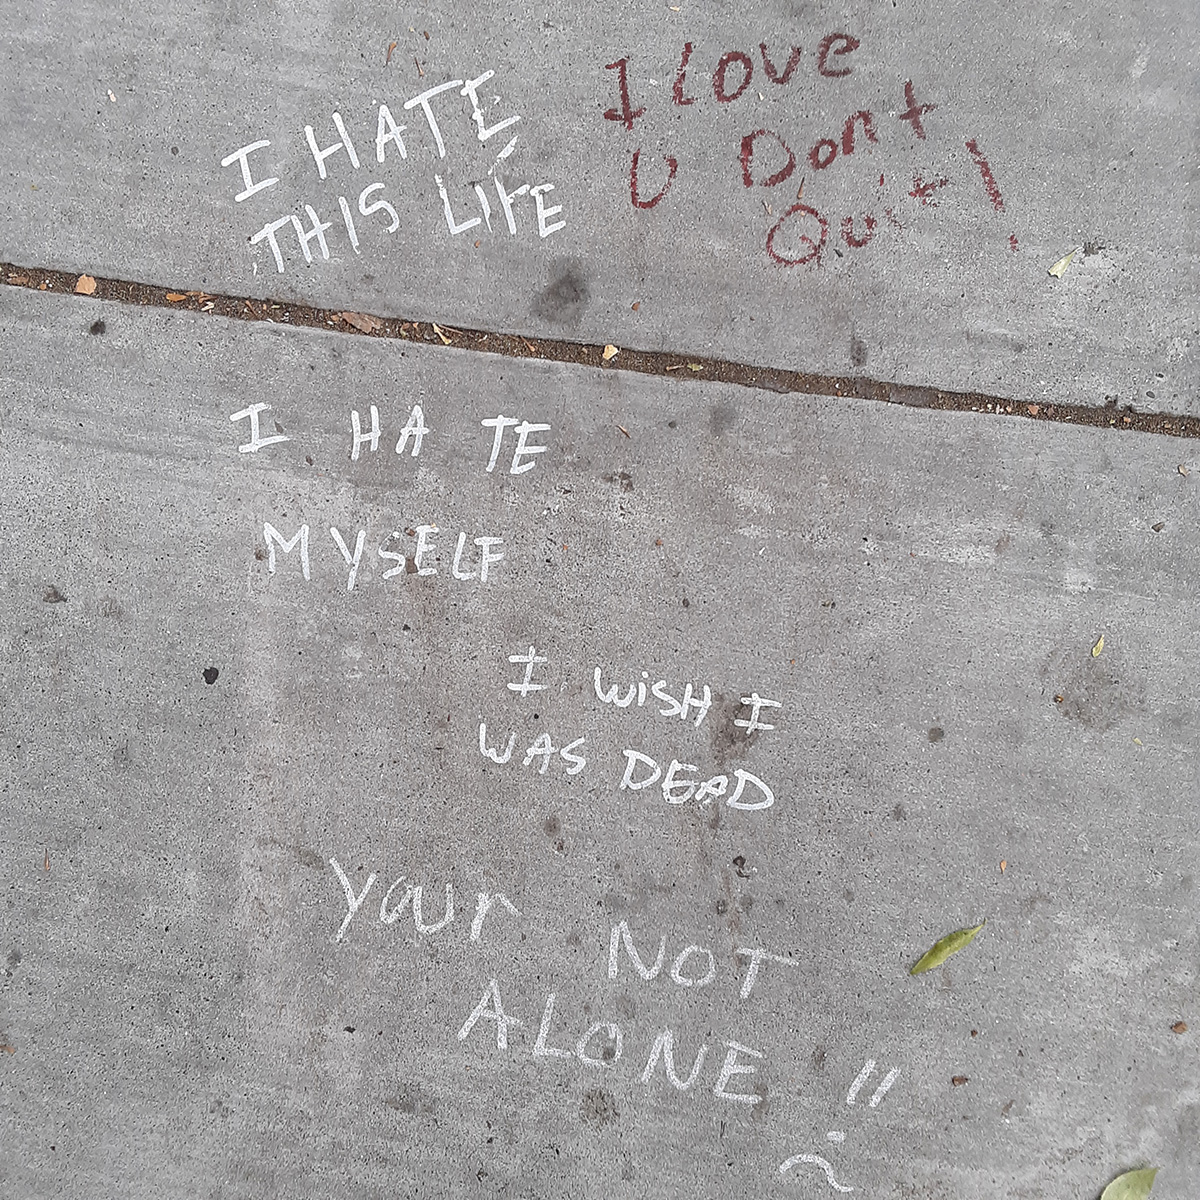 I HATE
THIS LIFE
I Love
U Dont
Quit!
I HATE
MYSELF
I WiSH I
WAS DEAD
Your NOT
ALONE !!